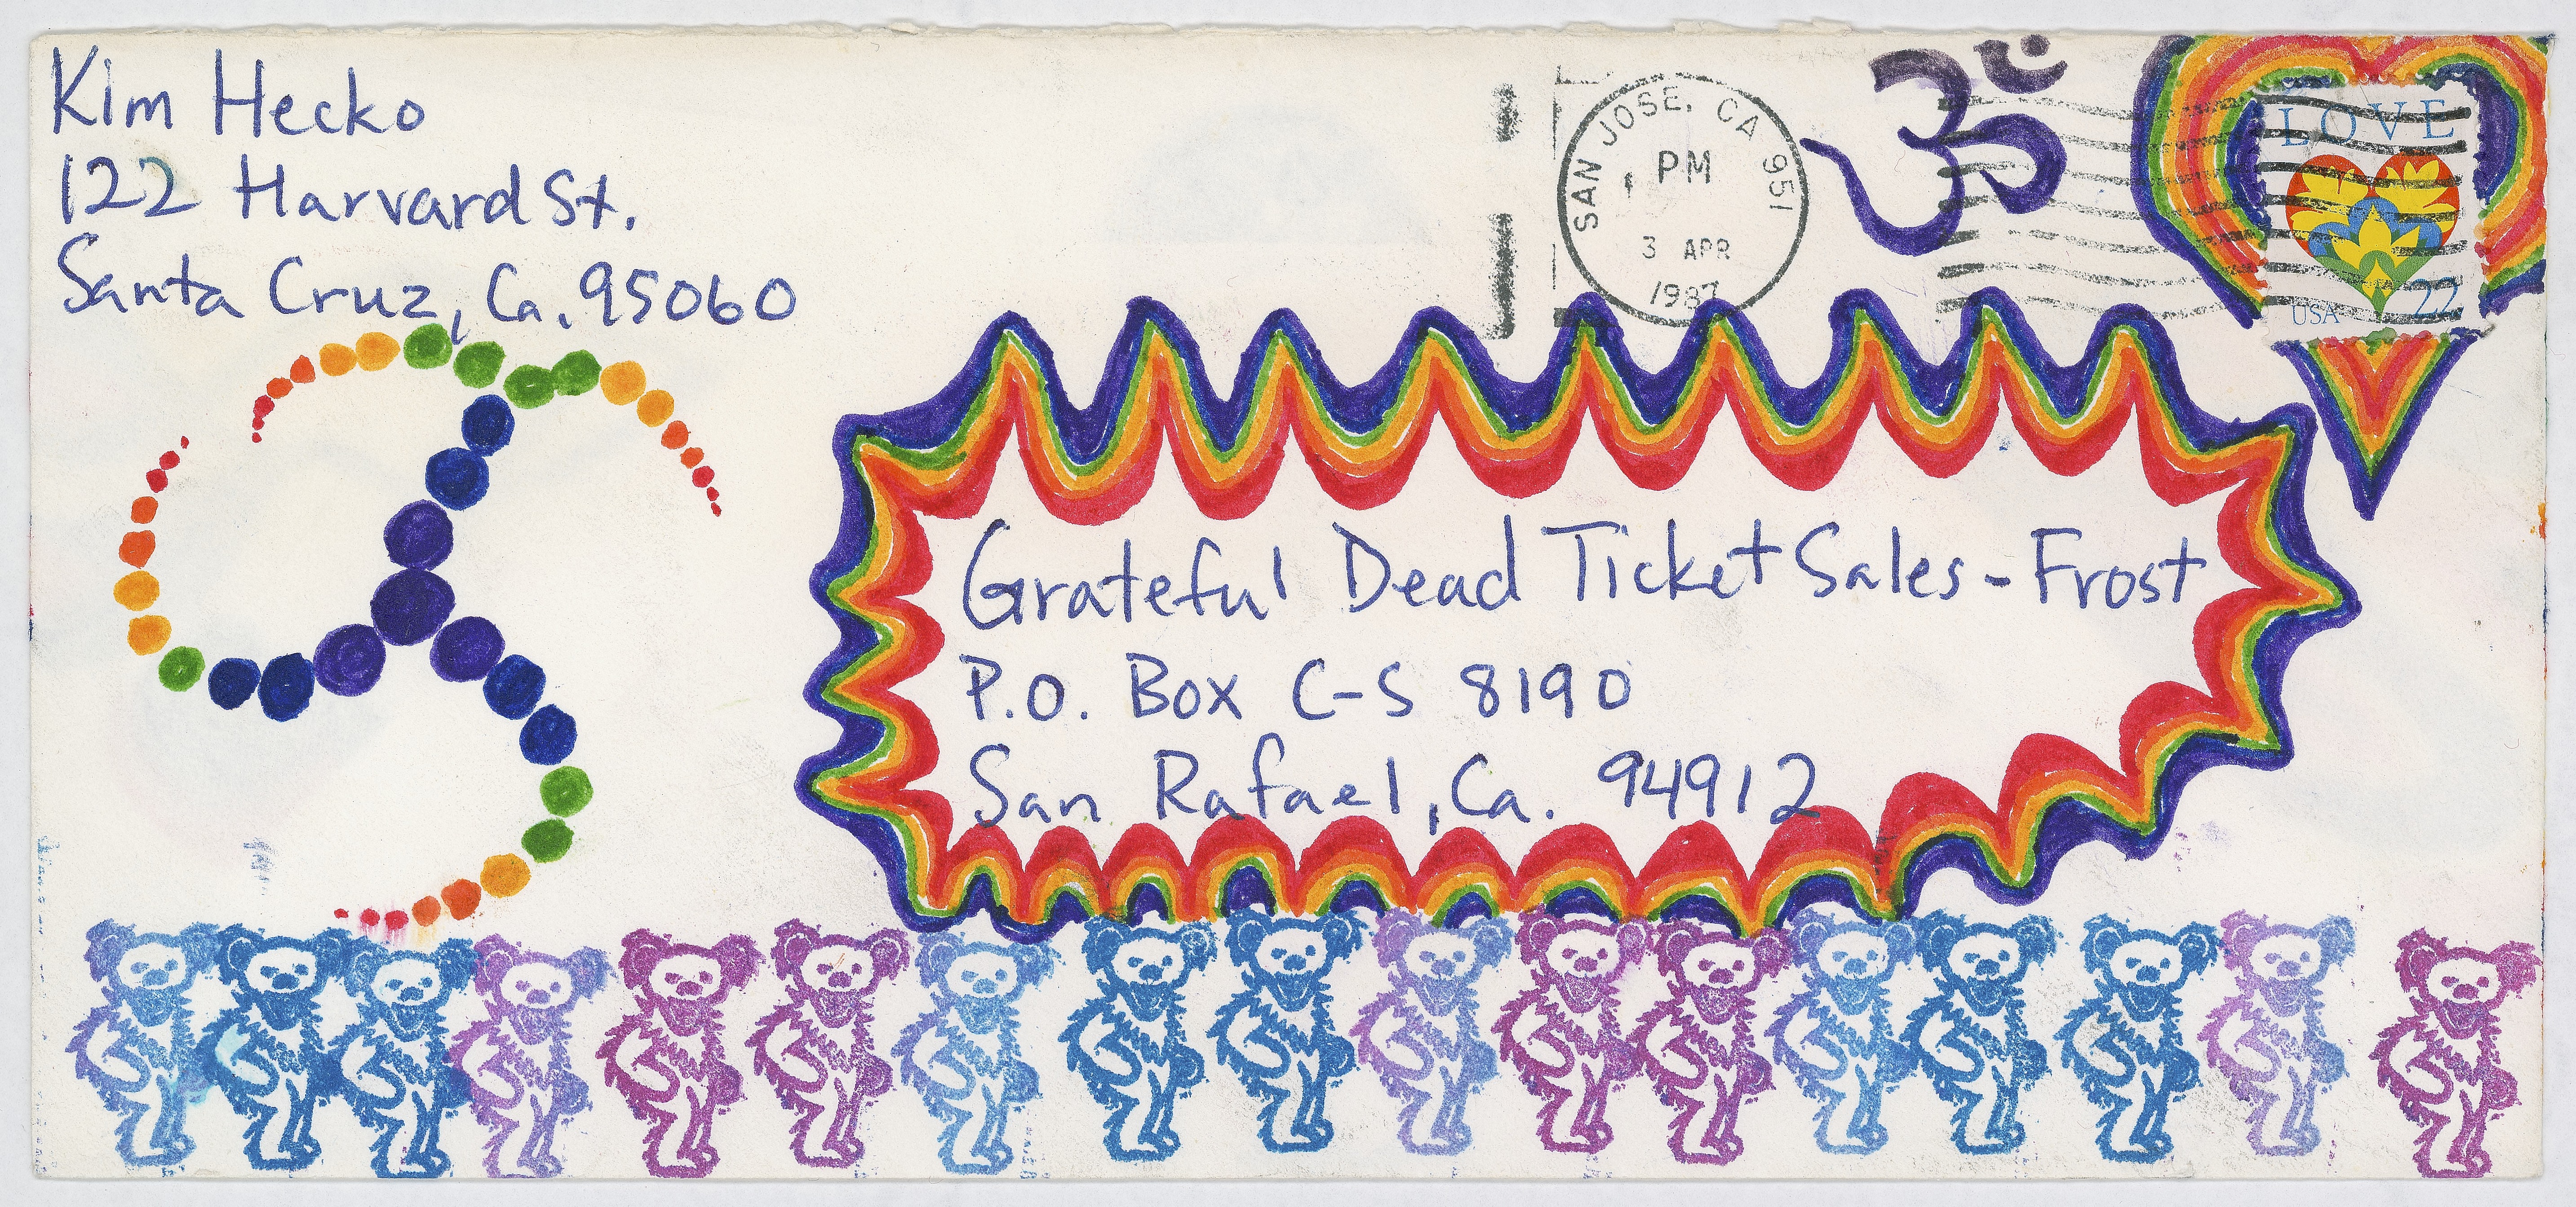 Kim Hecko
122 Harvard St.
Santa Cruz, Ca. 95060
SAN JOSE, CA 951
PM
3 APR
1987
ॐ
LOVE
USA 22
Grateful Dead Ticket Sales - Frost
P.O. Box C-S 8190
San Rafael, Ca. 94912